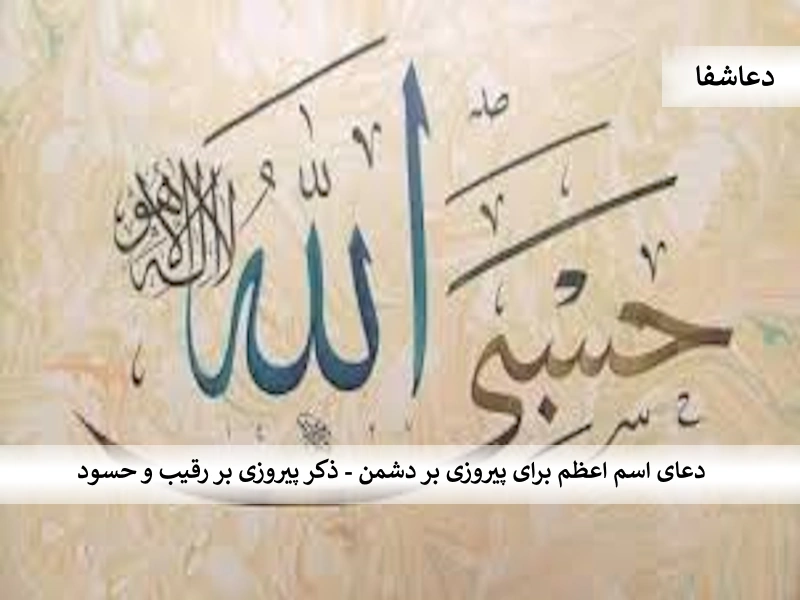 دعاشفا
حسبي الله
لا اله الا هو
دعای اسم اعظم برای پیروزی بر دشمن - ذکر پیروزی بر رقیب و حسود